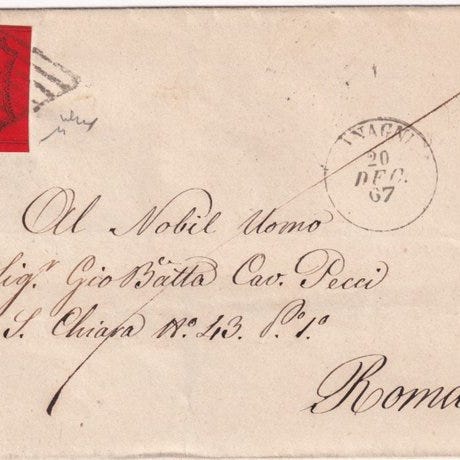 ANAGNI
20
DEC.
67
Al Nobil Uomo
Sig.r Gio Batta Cav. Pecci
S. Chiara No. 43. Po. 1o
Roma